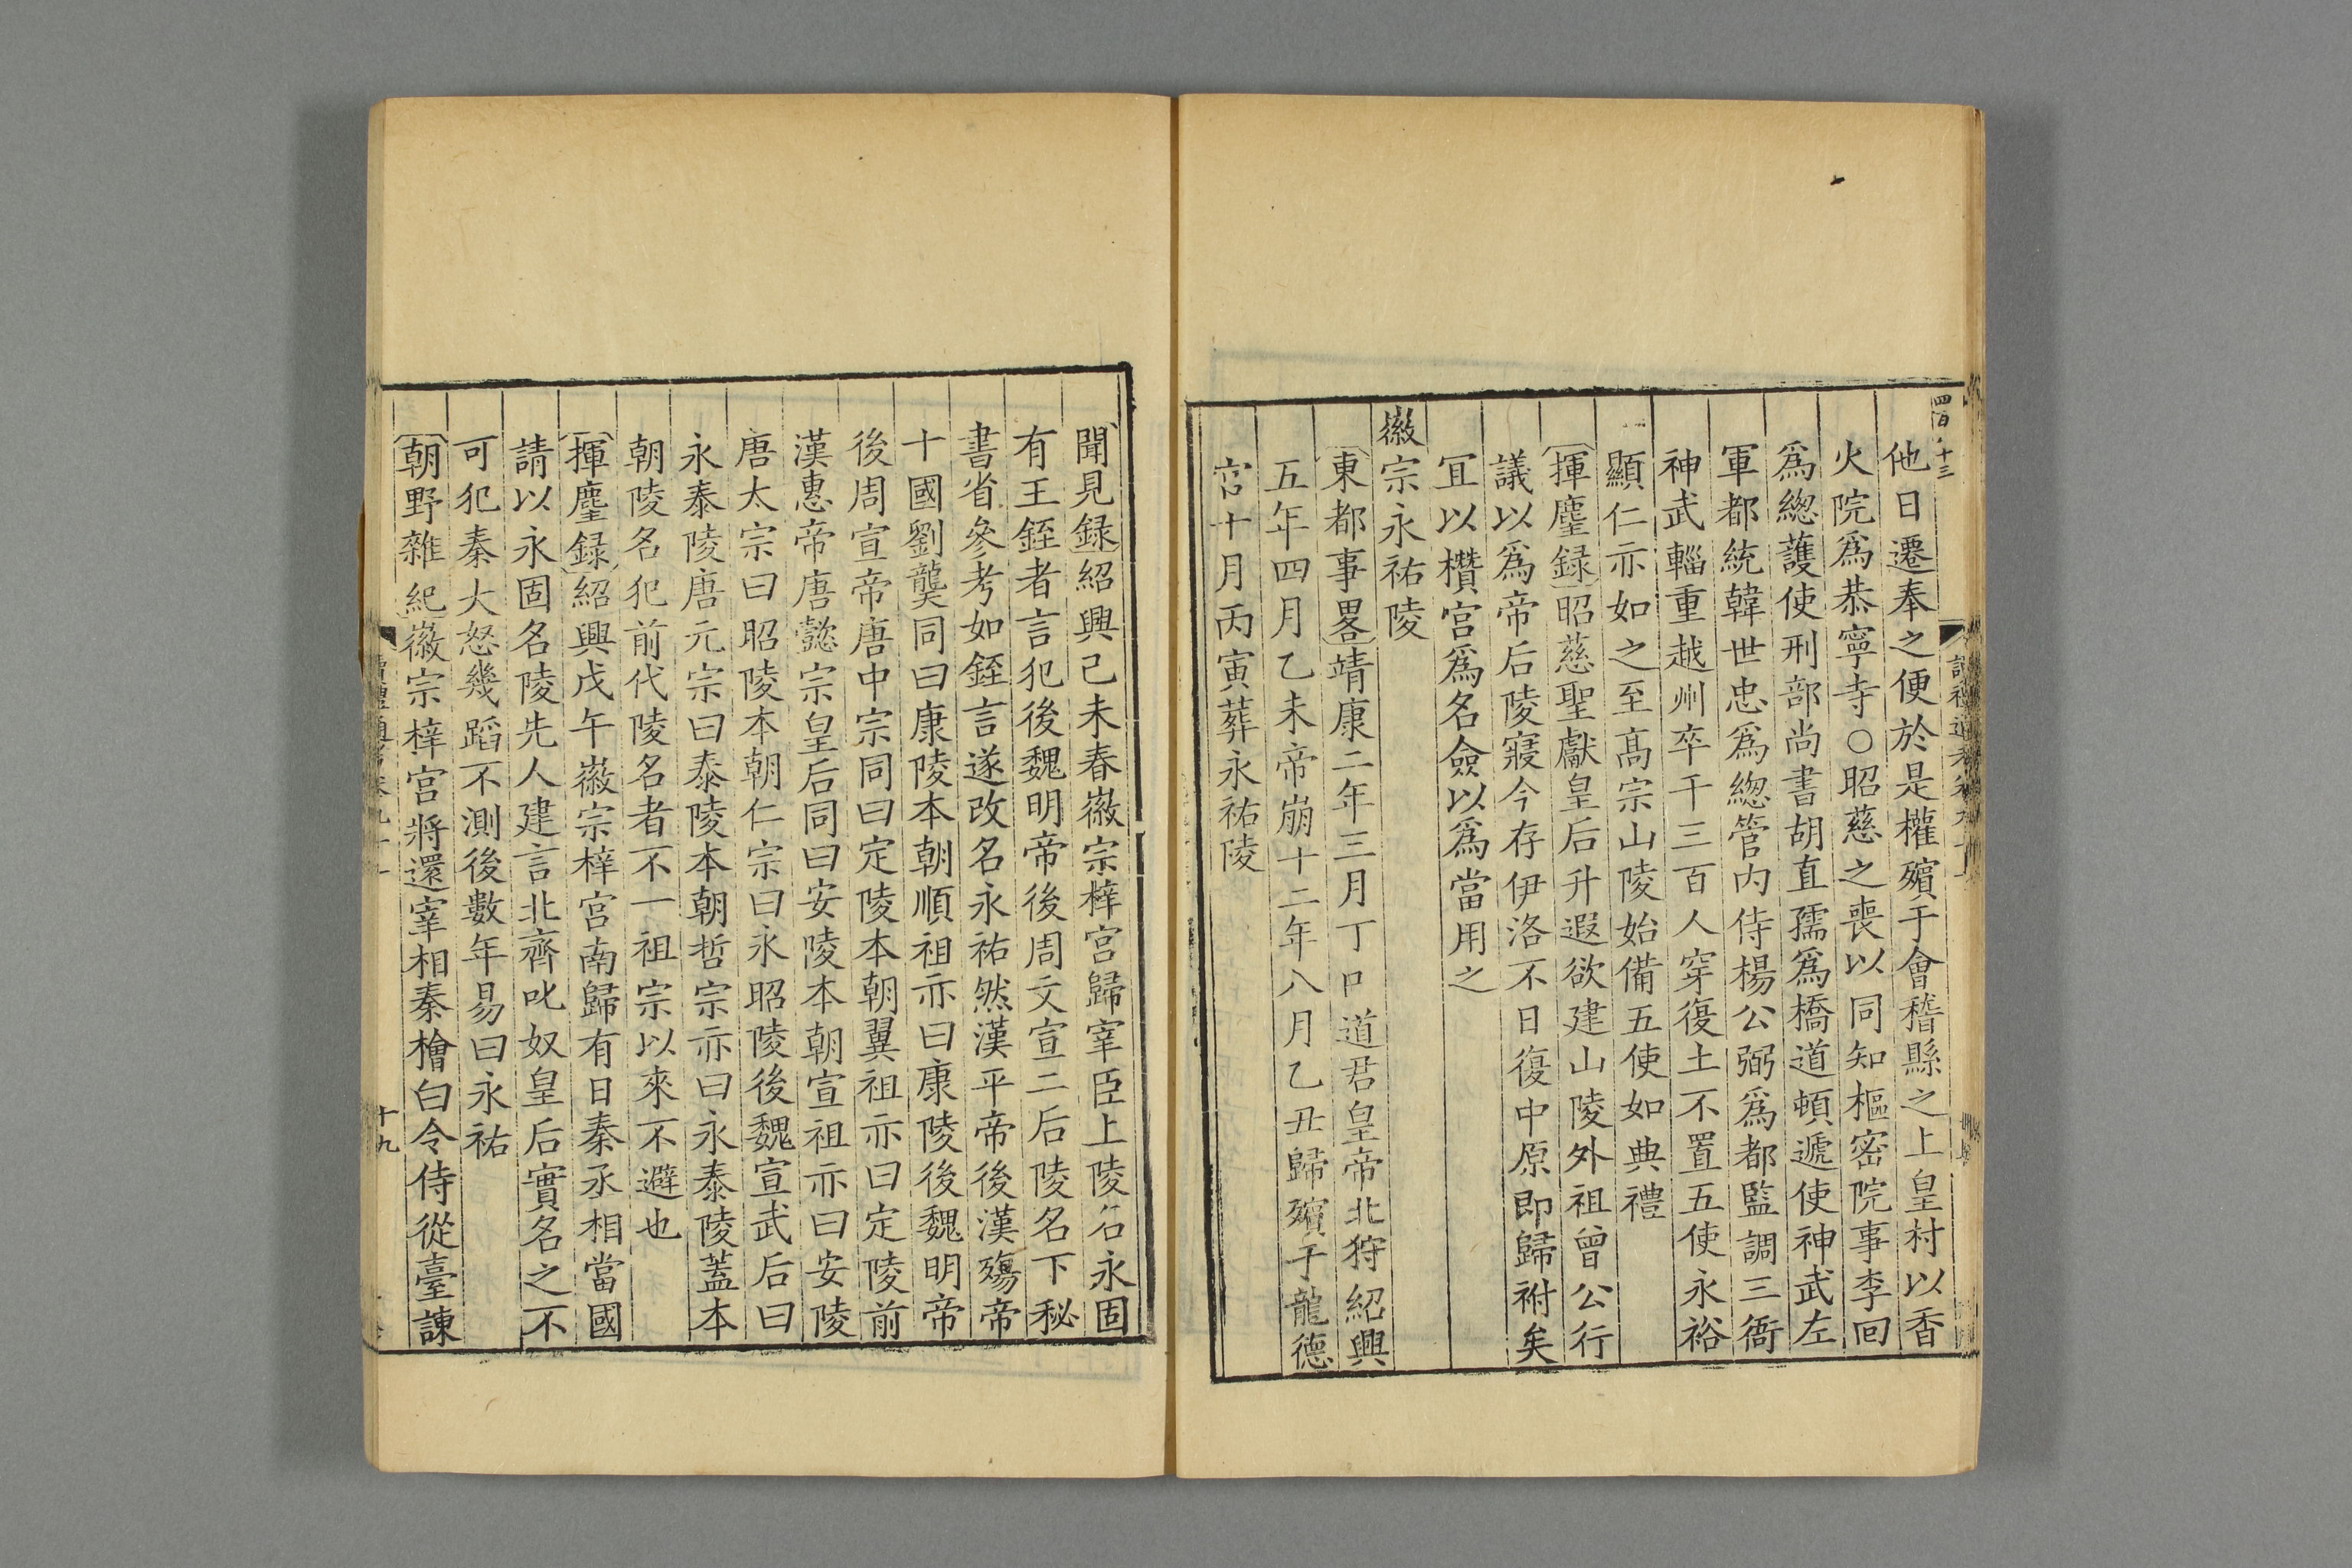 四百八十三
他日遷奉之便於是權殯于會稽縣之上皇村以香
火院爲恭寧寺○昭慈之喪以同知樞密院事李回
爲緫䕶使刑部尚書胡直孺爲橋道頓遞使神武左
軍都統韓世忠爲緫管内侍楊公弼爲都監調三衙
神武輜重越州卒千三百人穿復土不置五使永裕
顯仁亦如之至髙宗山陵始備五使如典禮
揮麈録昭慈聖獻皇后升遐欲建山陵外祖曾公行
議以爲帝后陵寢今存伊洛不日復中原即歸祔矣
冝以欑宫爲名僉以爲當用之
徽宗永祐陵
東都事畧靖康二年三月丁 道君皇帝北狩紹興
五年四月乙未帝崩十二年八月乙丑歸殯于龍德
宫十月丙寅葬永祐陵
聞見録紹興己未春徽宗梓宫歸宰臣上陵名永固
有王銍者言犯後魏明帝後周文宣二后陵名下秘
書省參考如銍言遂改名永祐然漢平帝後漢殤帝
十國劉龑同曰康陵本朝順祖亦曰康陵後魏明帝
後周宣帝唐中宗同曰定陵本朝翼祖亦曰定陵前
漢惠帝唐懿宗皇后同曰安陵本朝宣祖亦曰安陵
唐太宗曰昭陵本朝仁宗曰永昭陵後魏宣武后曰
永泰陵唐元宗曰泰陵本朝哲宗亦曰永泰陵蓋本
朝陵名犯前代陵名者不一祖宗以來不避也
揮麈録紹興戊午徽宗梓宫南歸有日秦丞相當國
請以永固名陵先人建言北齊叱奴皇后實名之不
可犯秦大怒幾蹈不測後數年易曰永祐
朝野雜紀徽宗梓宫將還宰相秦檜白令侍從臺諫
十九